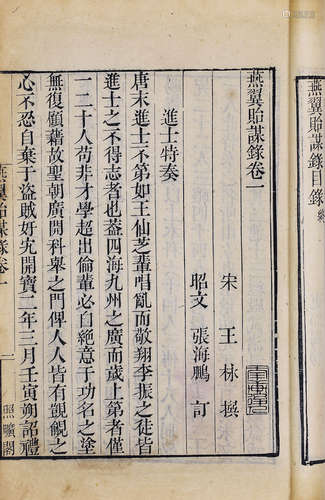 燕翼貽謀錄目錄
燕翼貽謀錄卷一
宋 王 栐 撰
昭文 張海鵬 訂
進士特奏
唐末進士不第如王仙芝輩唱亂而敬翔李振之徒皆
進士之不得志者也蓋四海九州之廣而歲上第者僅
一二十人苟非才學超出倫輩必自絕意于功名之塗
無復顧藉故聖朝廣開科舉之門俾人人皆有覬覦之
心不忍自棄于盜賊奸宄開寶二年三月壬寅朔詔禮
燕翼貽謀錄卷一
一
照曠閣